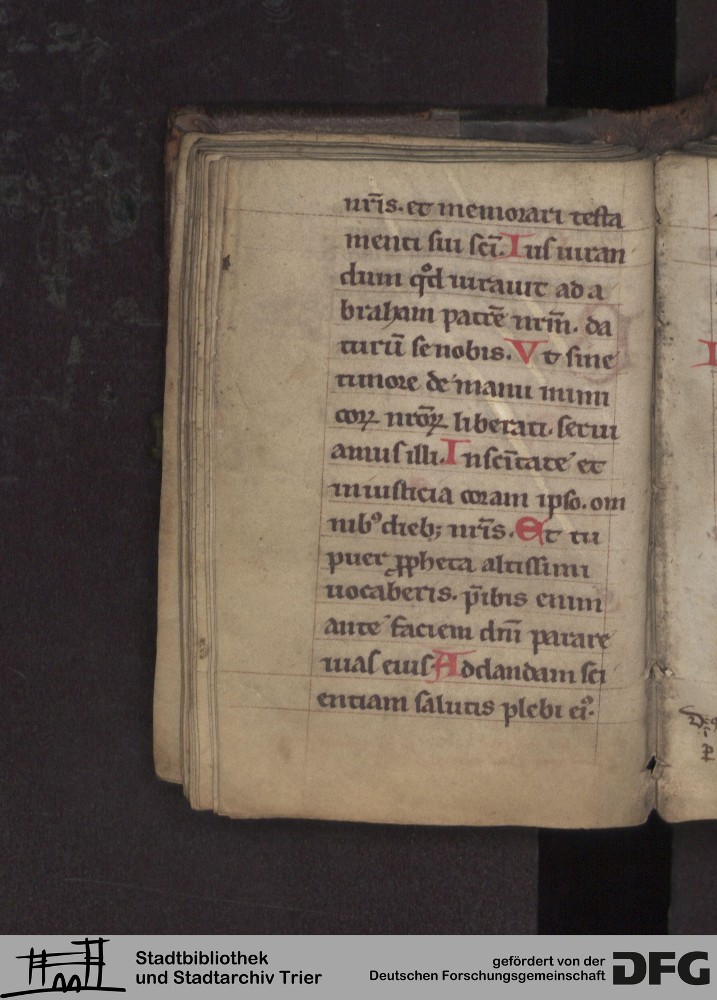 nr̄is. et memorari testa
menti sui sc̄i. Iusiuran
dum qd̕ iurauit ad a
braham patrē nrm̄. da
turū se nobis. Vt sine
timore de manu inimi
coꝝ nrōꝝ liberati. serui
amus illi. In sc̄itate et
in iusticia coram ipso. om
nibꝰ diebꝫ nr̄is. Et tu
puer ꝓpheta altissimi
uocaberis. p̄ibis enim
ante faciem dn̄i parare
uias eius Ad dandam sci
entiam salutis plebi eiꝰ.
Stadtbibliothek
und Stadtarchiv Trier
gefördert von der
Deutschen Forschungsgemeinschaft
DFG